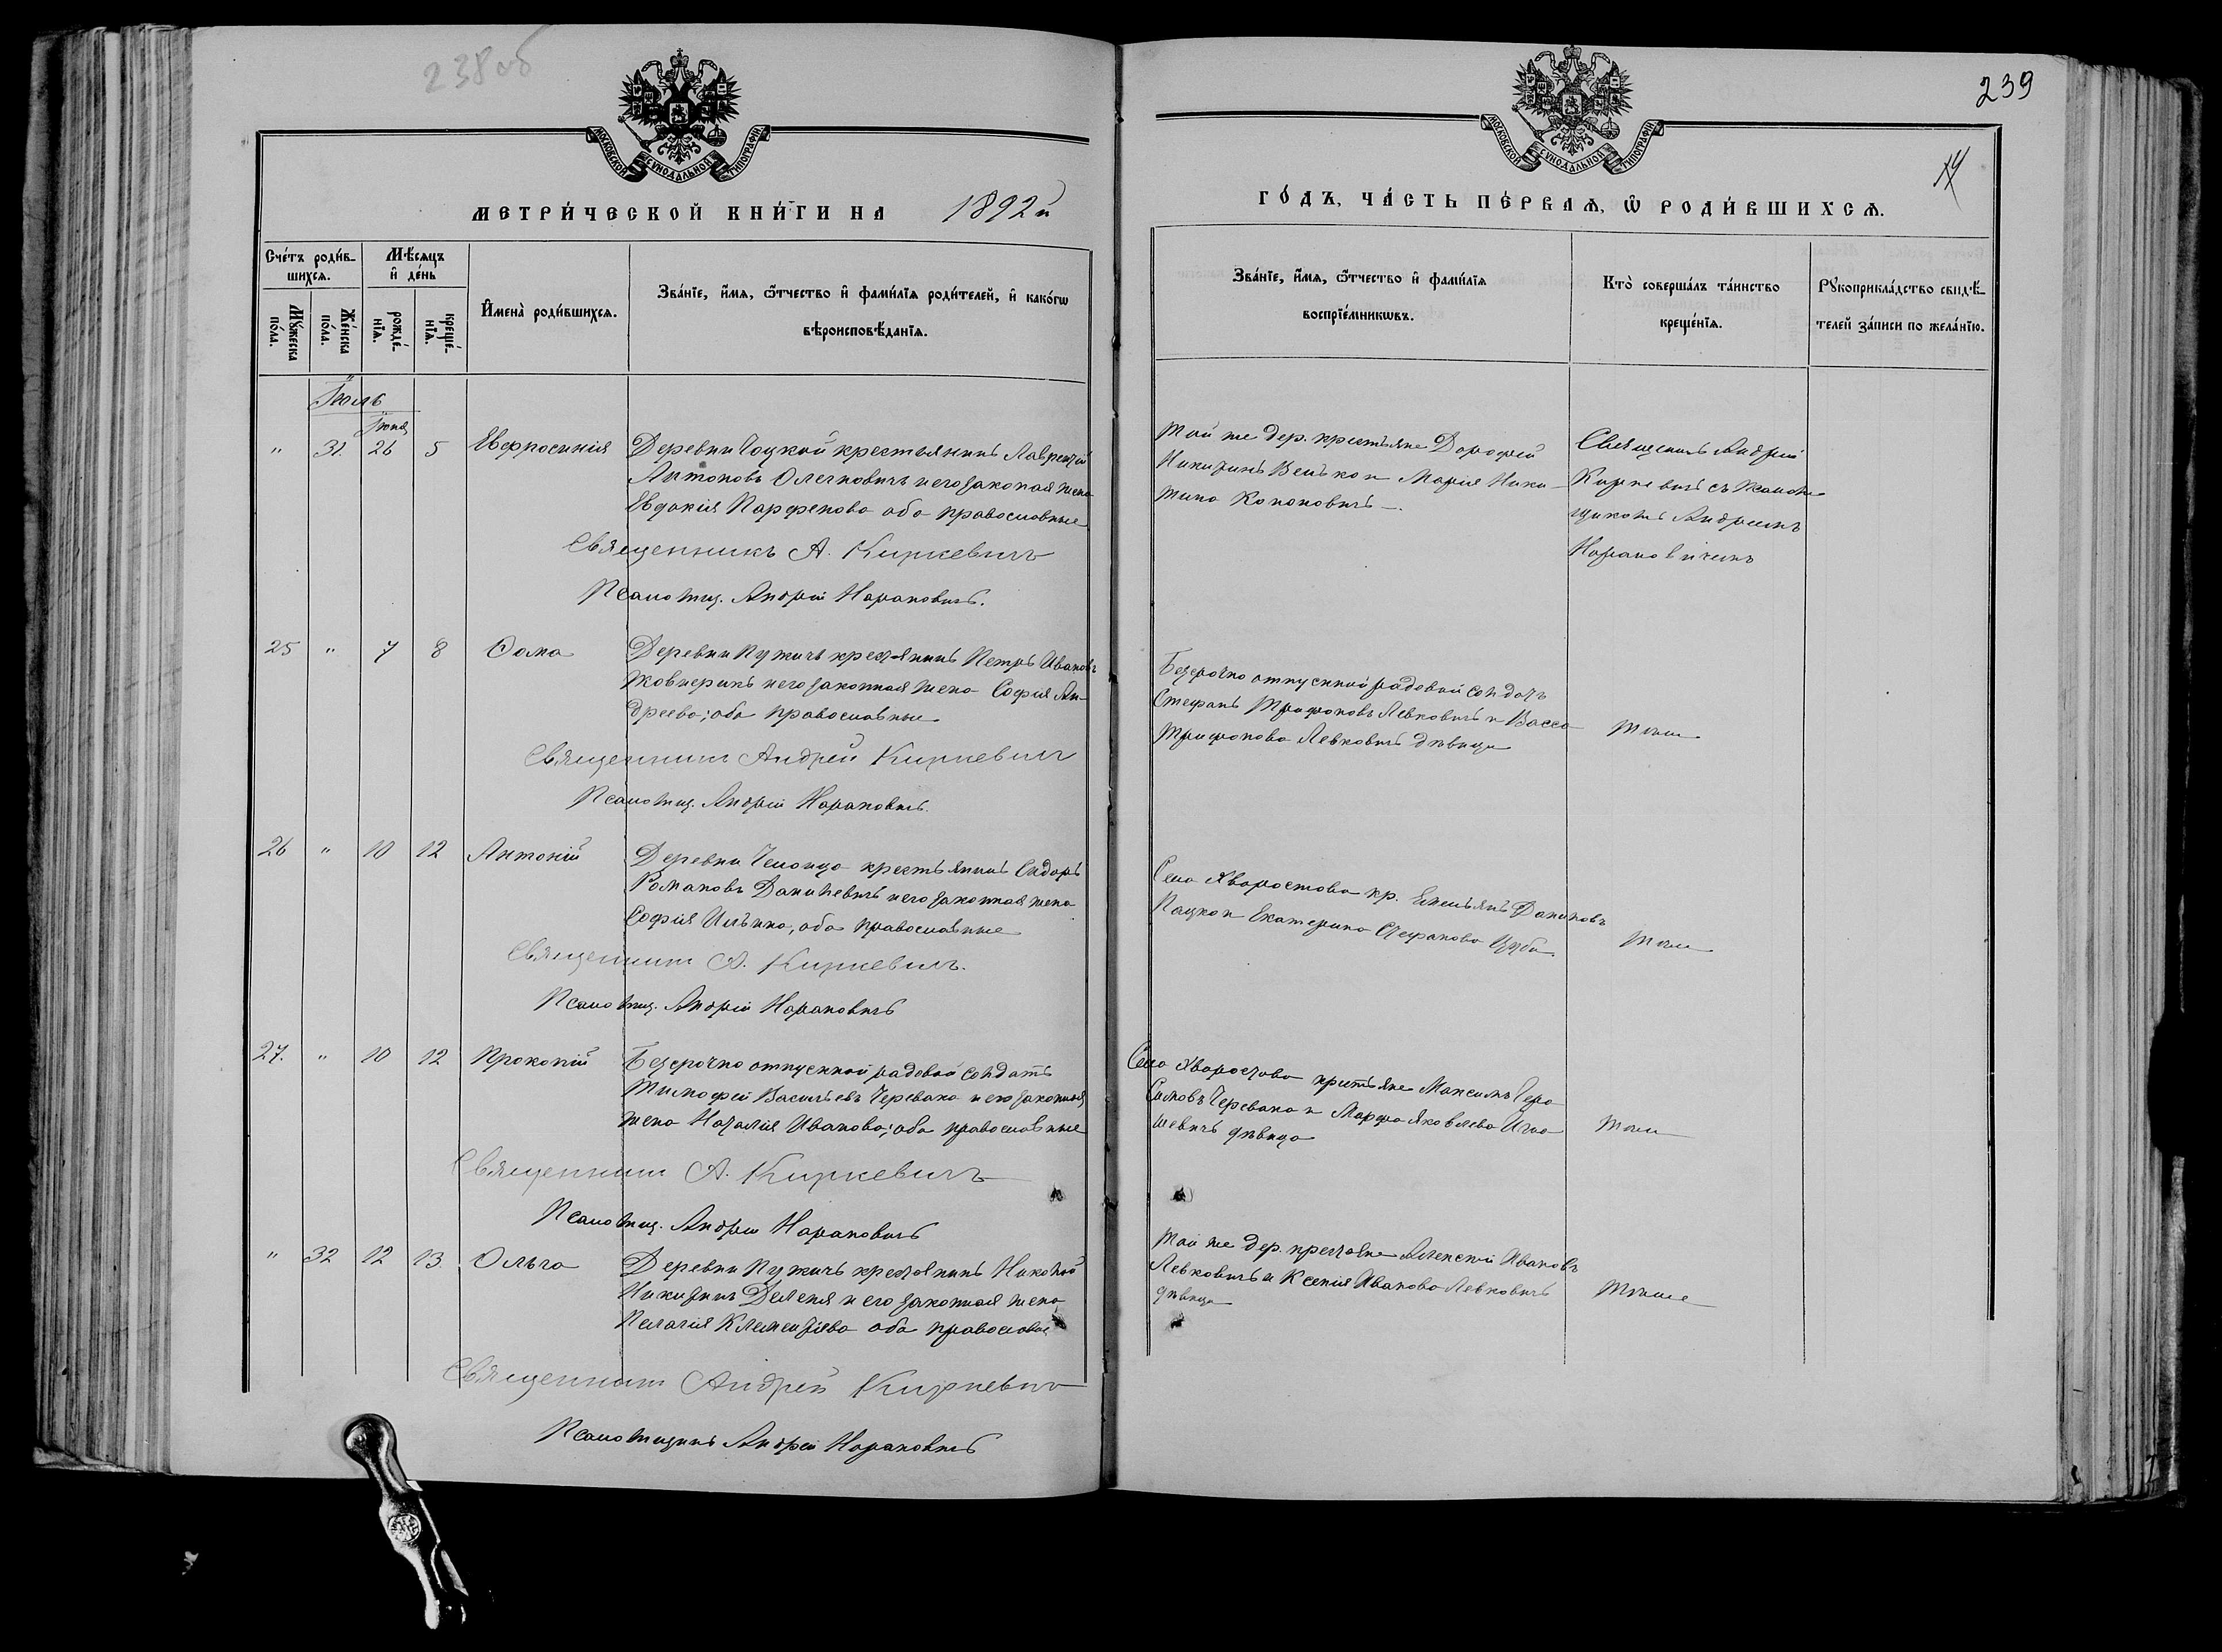 238 об
МОСКОВСКОЙ СѴНОДАЛЬНОЙ ТИПОГРАФІИ
МЕТРИ́ЧЕСКОЙ КНИ́ГИ НА 1892 й
Сче́тъ роди́в-
шихсѧ.
Мѣ́сѧцъ
и҆ де́нь
Мꙋ́жеска
по́ла.
Же́нска
по́ла.
рожде́-
нїѧ.
креще́-
нїѧ.
И҆мена̀ роди́вшихсѧ.
Зва́нїе, и҆́мѧ, ѻ҆́тчество и҆ фами́лїѧ роди́телей, и҆ како́гѡ
вѣроисповѣ́данїѧ.
Іюль
Іюня
" 31. 26 5 Евфросинія Деревни Чоцкой крестьянинъ Лаврентій
Антоновъ Олехновичъ и его законная жена
Евдокія Парфенова оба православные
Священникъ А. Киркевичъ
Псаломщ. Андрей Нарановичъ.
25 " 7 8 Ѳома Деревни Пужичъ крестьянинъ Петръ Ивановъ
Жовнерикъ и его законная жена София Ан-
дреева; оба православные
Священникъ Андрей Киркевичъ
Псаломщ. Андрей Нарановичъ.
26 " 10 12 Антоній Деревни крестьянинъ Сидоръ
Романовъ Данилевичъ и его законная жена
Софія Ильина, оба православные
Священникъ А. Киркевичъ.
Псаломщ. Андрей Нарановичъ
27. " 10 12 Прокопій Безсрочно отпускной рядовой солдатъ
Тимофей Васильевъ Черевако и его законная
жена Наталія Иванова; оба православные
Священникъ А. Киркевичъ
Псаломщ. Андрей Нарановичъ
" 32 12 13 Ольга Деревни Пужичъ крестьянинъ Николай
Никитинъ Деленя и его законная жена
Пелагія Клементіева оба православ
Священникъ Андрей Киркевичъ
Псаломщикъ Андрей Нарановичъ
239
МОСКОВСКОЙ СѴНОДАЛЬНОЙ ТИПОГРАФІИ
ГО́ДЪ, ЧА́СТЬ ПЕ́РВАѦ, Ѡ҆ РОДИ́ВШИХСѦ.
Зва́нїе, и҆́мѧ, ѻ҆́тчество и҆ фами́лїѧ
воспрїе́мникѡвъ.
Кто̀ соверша́лъ та́инство
креще́нїѧ.
Рꙋкоприкла́дство свидѣ́-
телей за́писи по жела́нїю.
Той же дер. крестьяне Дорофей
Никитинъ Велько и Марія Ники-
тина Кононовичъ.
Священикъ Андрей
Киркевичъ съ Псалом
щикомъ Андреемъ
Нарановичемъ
Безсрочно отпускной рядовой солдатъ
Стефанъ Трифоновъ Левковичъ и Васса
Трифонова Левковичъ дѣвица
Тѣже
Села Хворостова кр. Емельянъ Даниловъ
Пацко и Екатерина Стефанова
Тѣже
Села Хворостова крестьяне Максимъ Гера
симовъ Черевако и Марфа Яковлева Игна
шевичъ дѣвица
Тѣже
Той же дер. крестьяне Алексей Ивановъ
Левковичъ и Ксенія Иванова Левковичъ
дѣвица
Тѣже